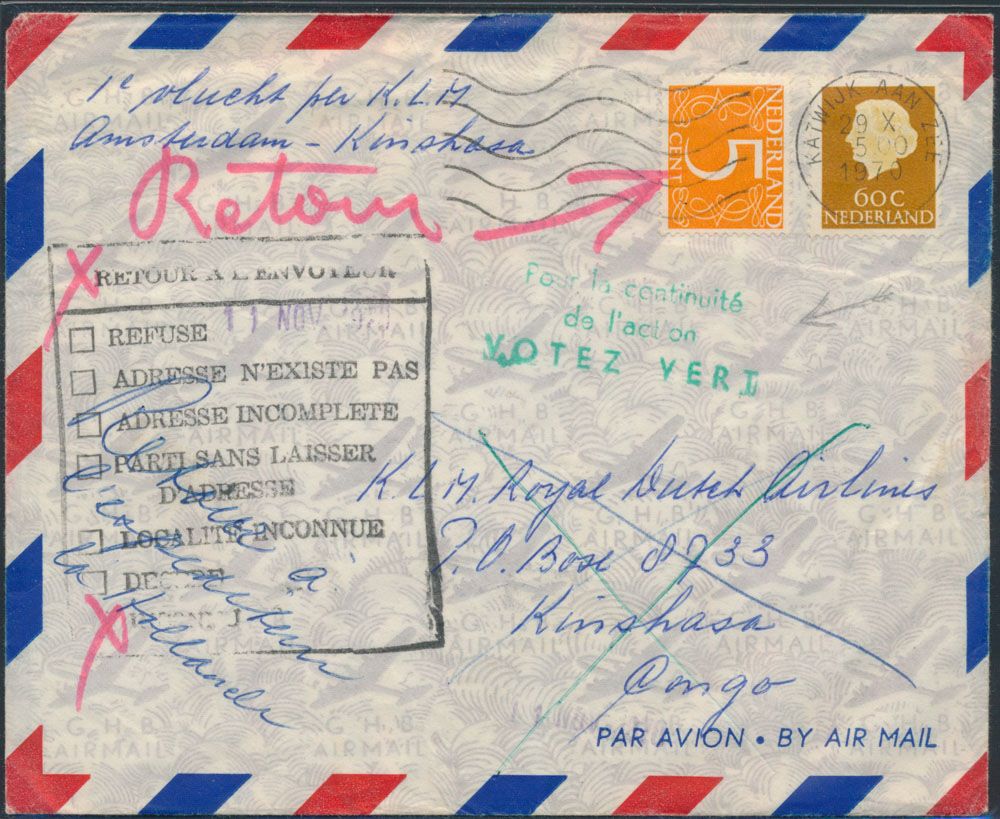 1e vlucht per K.L.M.
Amsterdam - Kinshasa
Retour
NEDERLAND
5
CENT
KATWIJK AAN ZEE
29 X.
5 00
1970
60 C
NEDERLAND
Pour la continuité
de l'action
VOTEZ VERT
RETOUR A L'ENVOYEUR
11 NOV 1970
REFUSE
ADRESSE N'EXISTE PAS
ADRESSE INCOMPLETE
PARTI SANS LAISSER
D'ADRESSE
LOCALITE INCONNUE
Retour à
l'expéditeur
Hollande
K.L.M. Royal Dutch Airlines
P.O. Bose 8733
Kinshasa
Congo
PAR AVION • BY AIR MAIL
G H B
AIRMAIL